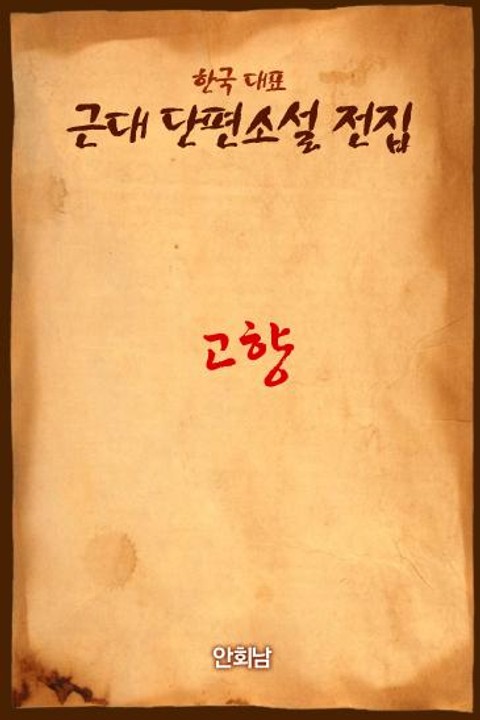 한국 대표
근대 단편소설 전집
고향
안회남